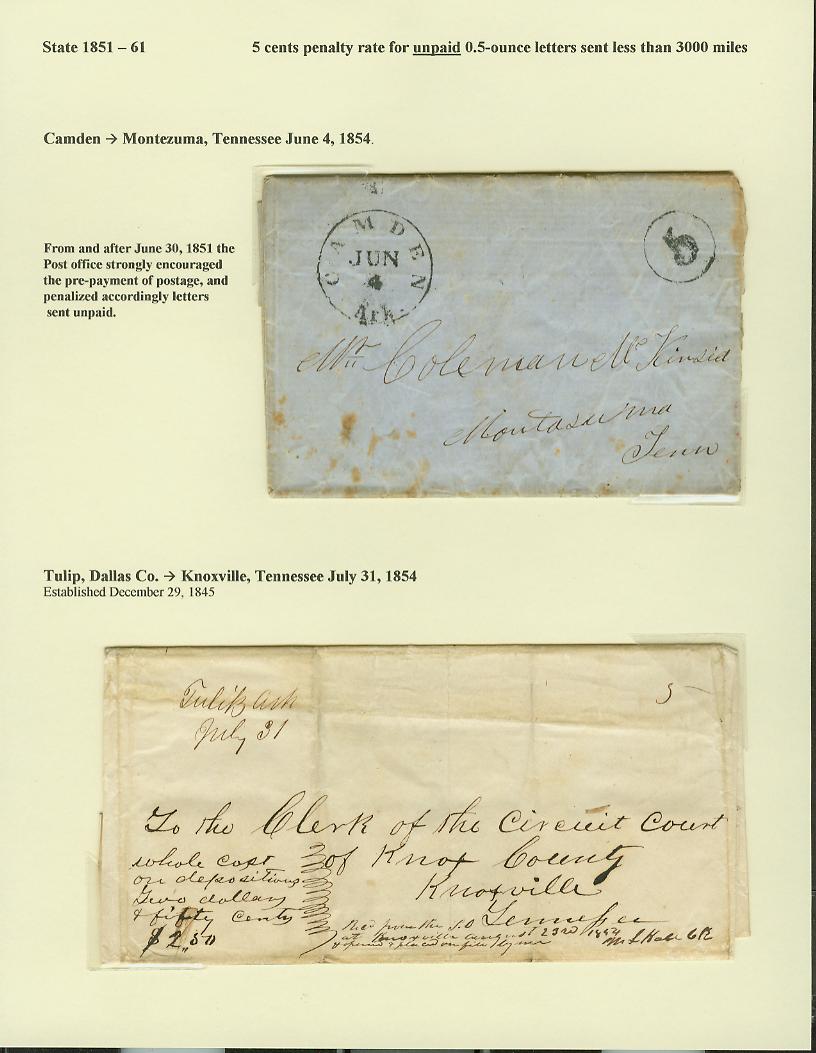 State 1851 – 61
5 cents penalty rate for unpaid 0.5-ounce letters sent less than 3000 miles
Camden → Montezuma, Tennessee June 4, 1854.
From and after June 30, 1851 the
Post office strongly encouraged
the pre-payment of postage, and
penalized accordingly letters
sent unpaid.
CAMDEN
JUN
4
Ark.
5
Mr Coleman McKinsid
Montasuma
Tenn
Tulip, Dallas Co. → Knoxville, Tennessee July 31, 1854
Established December 29, 1845
Tulip Ark
July 31
5
To the Clerk of the Circuit Court
of Knox County
Knoxville
Tennessee
whole cost
on depositions
Two dollars
& fifty cents
$2.50
Rec'd from the P.O
at Knoxville August 23rd 1854
& opened & placed on file by me